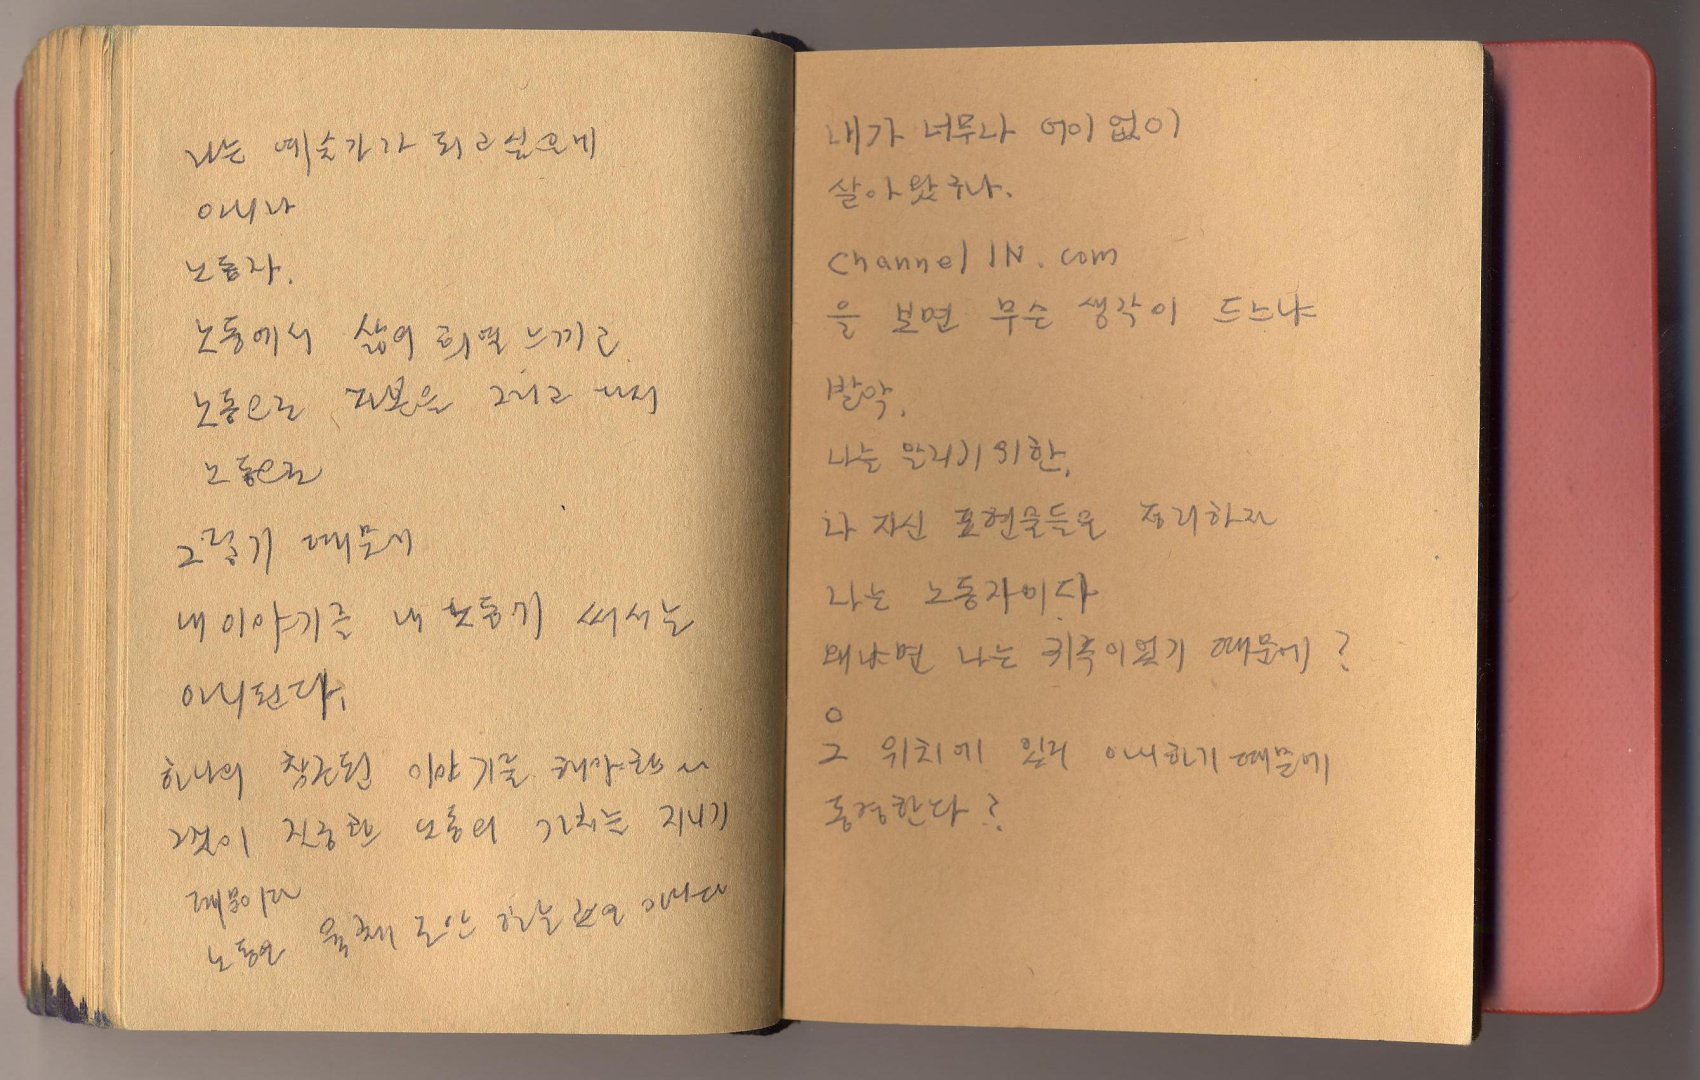 나는 예술가가 되고싶은게
아니라
노동자.
노동에서 삶의 희열 느끼고
노동으로 그리고 다시
노동으로
그렇기 때문에
내 이야기를 내 노동기 써서는
아니된다.
하나의 창조된 이야기를 해야한
그것이 진중한 노동의 가치를 지니기
때문이다
노동은 육체 하는 것은 아니다
내가 너무나 어이없이
살아왔구나.
Channel IN. com
을 보면 무슨 생각이 드느냐
발악.
나는 알리기 위한,
나 자신 표현술들을 정리하자
나는 노동자이다
왜냐면 나는 귀족이었기 때문에?
그 위치에 있지 아니하기 때문에
동경한다?